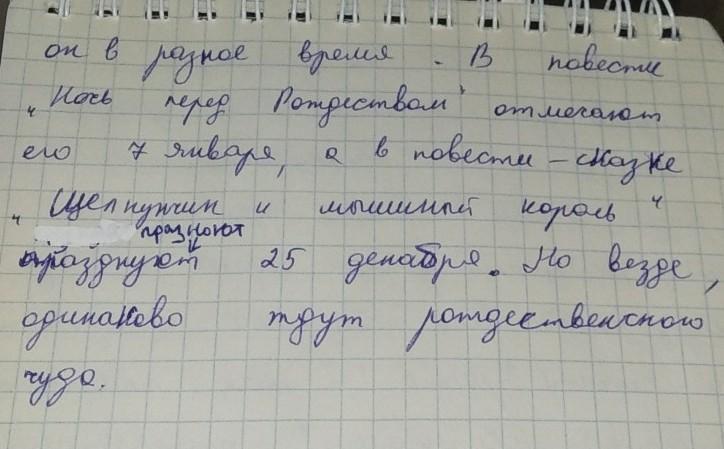 он в разное время. В повести
„Ночь перед Рождеством" отмечают
его 7 января, а в повести-сказке
„Щелкунчик и мышиный король"
празнуют
празднуют 25 декабря. Но везде,
одинаково ждут рождественского
чуда.